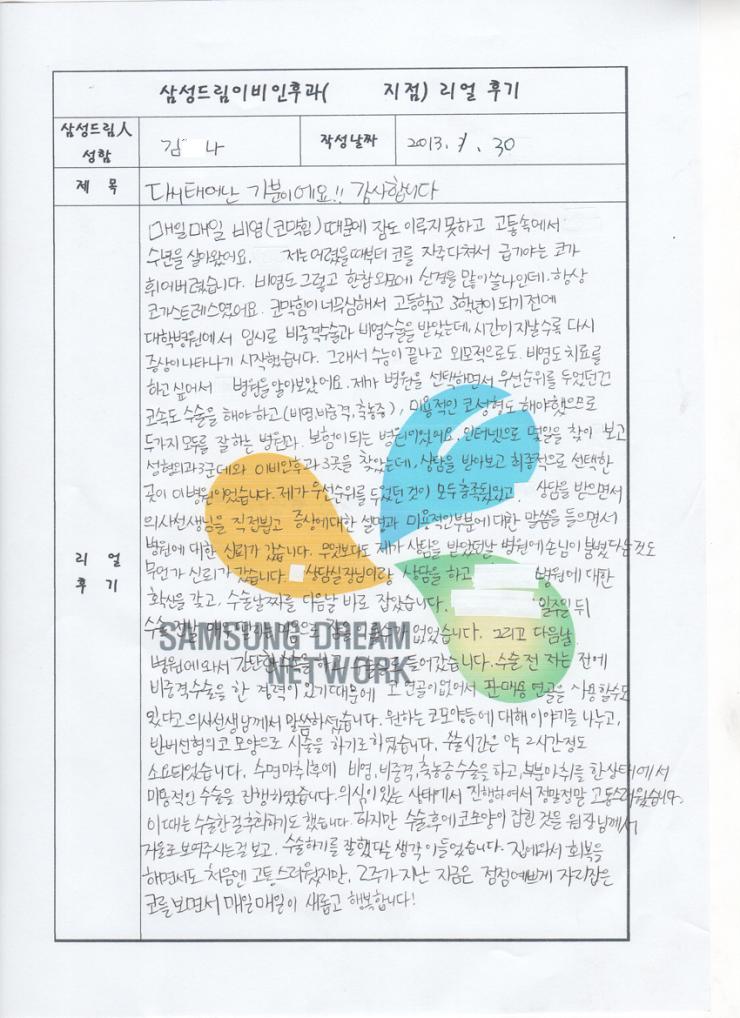 삼성드림이비인후과( 지점) 리얼 후기
삼성드림人 성함
김 나
작성날짜
2013. 7. 30
제 목
다시태어난 기분이에요!! 감사합니다
리 얼 후 기
매일매일 비염(코막힘)때문에 잠도 이루지못하고 고통속에서
수년을 살아왔어요. 저는어렸을때부터 코를 자주다쳐서 급기야는 코가
휘어버렸습니다. 비염도 그렇고 한참외모에 신경을 많이쓸나인데. 항상
코가스트레스였어요. 코막힘이너무심해서 고등학교 3학년이되기전에
대학병원에서 임시로 비중격수술과 비염수술을받았는데, 시간이 지날수록 다시
증상이나타나기 시작했습니다. 그래서 수능이 끝나고 외모적으로도. 비염도치료를
하고싶어서 병원을알아보았어요. 제가 병원을 선택하면서 우선순위를 두었던건
코속도 수술을 해야하고(비염,비중격,축농증), 미용적인 코성형도 해야했으므로
두가지모두를 잘 하는 병원과. 보험이되는 병원이었어요. 인터넷으로 몇일을 찾아 보고
성형외과3군데와 이비인후과3곳을 찾았는데, 상담을 받아보고 최종적으로 선택한
곳이 이병원이었습니다. 제가 우선순위를두었던 것이 모두충족됐었고. 상담을 받으면서
의사선생님을 직접뵙고 증상에대한 설명과 미용적인부분에 대한 말씀을 들으면서
병원에 대한 신뢰가 갔습니다. 무엇보다도 제가 상담을 받았던날 병원에손님이 붐볐다는것도
무언가 신뢰가갔습니다. 상담실장님이랑 상담을 하고 병원에 대한
확신을 갖고, 수술날짜를 다음날 바로 잡았습니다. 일주일 뒤
수술 전날 매우 떨리는 마음으로 잠을 이룰수가 없었습니다. 그리고 다음날
SAMSUNG DREAM
NETWORK
병원에와서 간단한 하고 들어갔습니다. 수술 전 저는 전에
비중격수술을 한 경력이 있기때문에 코 연골이없어서 판매용 연골을 사용할수도
있다고 의사선생님께서 말씀하셨습니다. 원하는 코모양등에 대해 이야기를 나누고,
반버선형의 코 모양으로 시술을 하기로하였습니다. 수술시간은 약 2시간정도
소요되었습니다. 수면마취후에 비염,비중격,축농증수술을 하고, 부분마취를 한상태에서
미용적인 수술을 진행하였습니다. 의식이있는 상태에서 진행하여서 정말정말 고통스러웠습니다.
이때는 수술한걸후회하기도 했습니다. 하지만 수술후에 코모양이 잡힌 것을 원장님께서
거울로보여주시는걸 보고. 수술하기를 잘했다는 생각이들었습니다. 집에와서 회복을
하면서도 처음엔 고통스러웠지만, 2주가 지난 지금은 점점예쁘게 자리잡은
코를 보면서 매일매일이 새롭고 행복합니다!